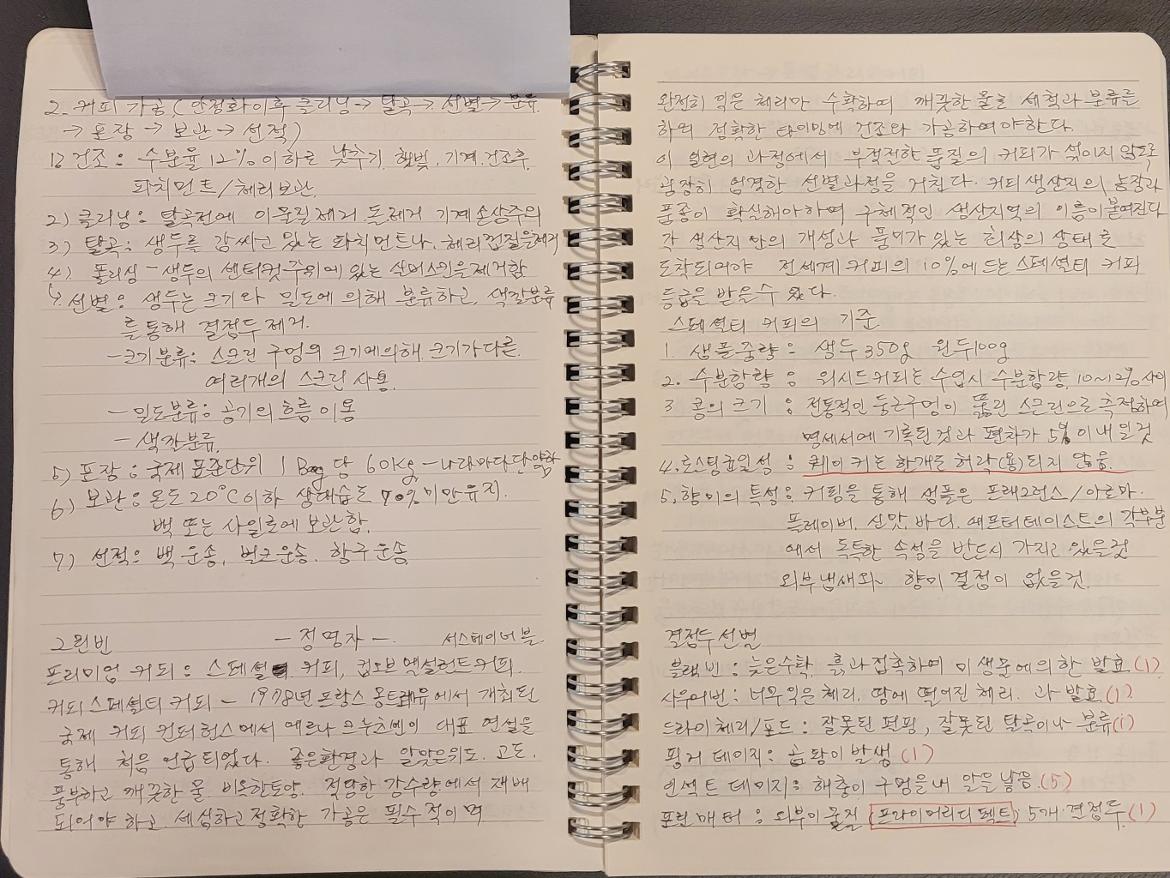 2. 커피가공 (안정화이후 클리닝→ 탈곡→ 선별→ 분류
→ 포장 → 보관 → 선적)
1) 건조 : 수분율 12% 이하로 낮추기, 햇빛, 기계, 건조후
파치먼트/체리보관
2) 클리닝 : 탈곡전에 이물질제거 돌제거 기계손상주의
3) 탈곡 : 생두를 감싸고 있는 파치먼트나, 체리껍질을제거
4) 폴리싱 - 생두의 센터컷주위에 있는 실버스킨을제거함
선별 : 생두는 크기와 밀도에 의해 분류하고, 색깔분류
를 통해 결점두 제거.
-크기분류: 스크린 구멍의 크기에의해 크기가 다른
여러개의 스크린 사용.
- 밀도분류: 공기의 흐름 이용
- 색깔분류.
5) 포장 : 국제 표준단위 1 Bag 당 60kg - 나라마다
6) 보관 : 온도 20°C 이하 상대습도 70% 미만유지.
백 또는 사일로에 보관함.
7) 선적 : 백 운송, 벌크운송. 항구운송
그린빈 - 정명자 -. 서스테이너블.
프리미엄 커피 : 스페셜 커피, 컵오브엑설런트커피.
커피 스페셜티 커피 - 1978년 프랑스 몽트레유에서 개최된
국제 커피 컨퍼런스에서 에르나 크누츠센이 대표 연설을
통해 처음 언급되었다. 좋은환경과 알맞은위도, 고도.
풍부하고 깨끗한 물 비옥한토양. 적당한 강수량에서 재배
되어야 하고, 세심하고 정확한 가공은 필수적이며
완전히 익은 체리만 수확하며 깨끗한 물로 세척과 분류를
하의 정확한 타이밍에 건조와 가공하여야한다.
이 일련의 과정에서 부적절한 품질의 커피가 섞이지 않도록
굉장히 엄격한 선별과정을 거친다. 커피생산지의 농장과
품종이 확실해야하며 구체적인 생산지역의 이름이붙여진다
각 생산지 만의 개성과 풍미가 있는 최상의 상태로
도착되어야 전세계 커피의 10%에 드는 스페셜티 커피
등급을 받을수 있다.
스페셜티 커피의 기준
1. 샘플중량 : 생두 350g 원두100g
2. 수분함량 : 워시드커피는 수입시 수분함량 10~12% 사이
3 콩의 크기 : 전통적인 둥근구멍이 뚫린 스크린으로 측정하여
명세서에 기록된것과 편차가 5% 이내일것
4. 로스팅균일성 : 퀘이커는 한개도 허락(용)되지 않음.
5. 향미의 특성 : 커핑을 통해 샘플은 프래그런스/아로마.
플레이버, 신맛, 바디. 애프터테이스트의 각부분
에서 독특한 속성을 반드시 가지고 있을것
외부냄새와 향미 결점이 없을것.
결점두 선별
블랙빈 : 늦은수확, 흙과접촉하여 미생물에의한 발효.(1)
사우어빈 : 너무익은 체리, 땅에 떨어진 체리. 과발효.(1)
드라이체리/포드 : 잘못된 펄핑, 잘못된 탈곡이나 분류(1)
펑거 데미지 : 곰팡이 발생 (1)
인섹트 데미지 : 해충이 구멍을내 알을낳음.(5)
포린매터 : 외부이물질 (프라이머리디펙트) 5개 결점두.(1)